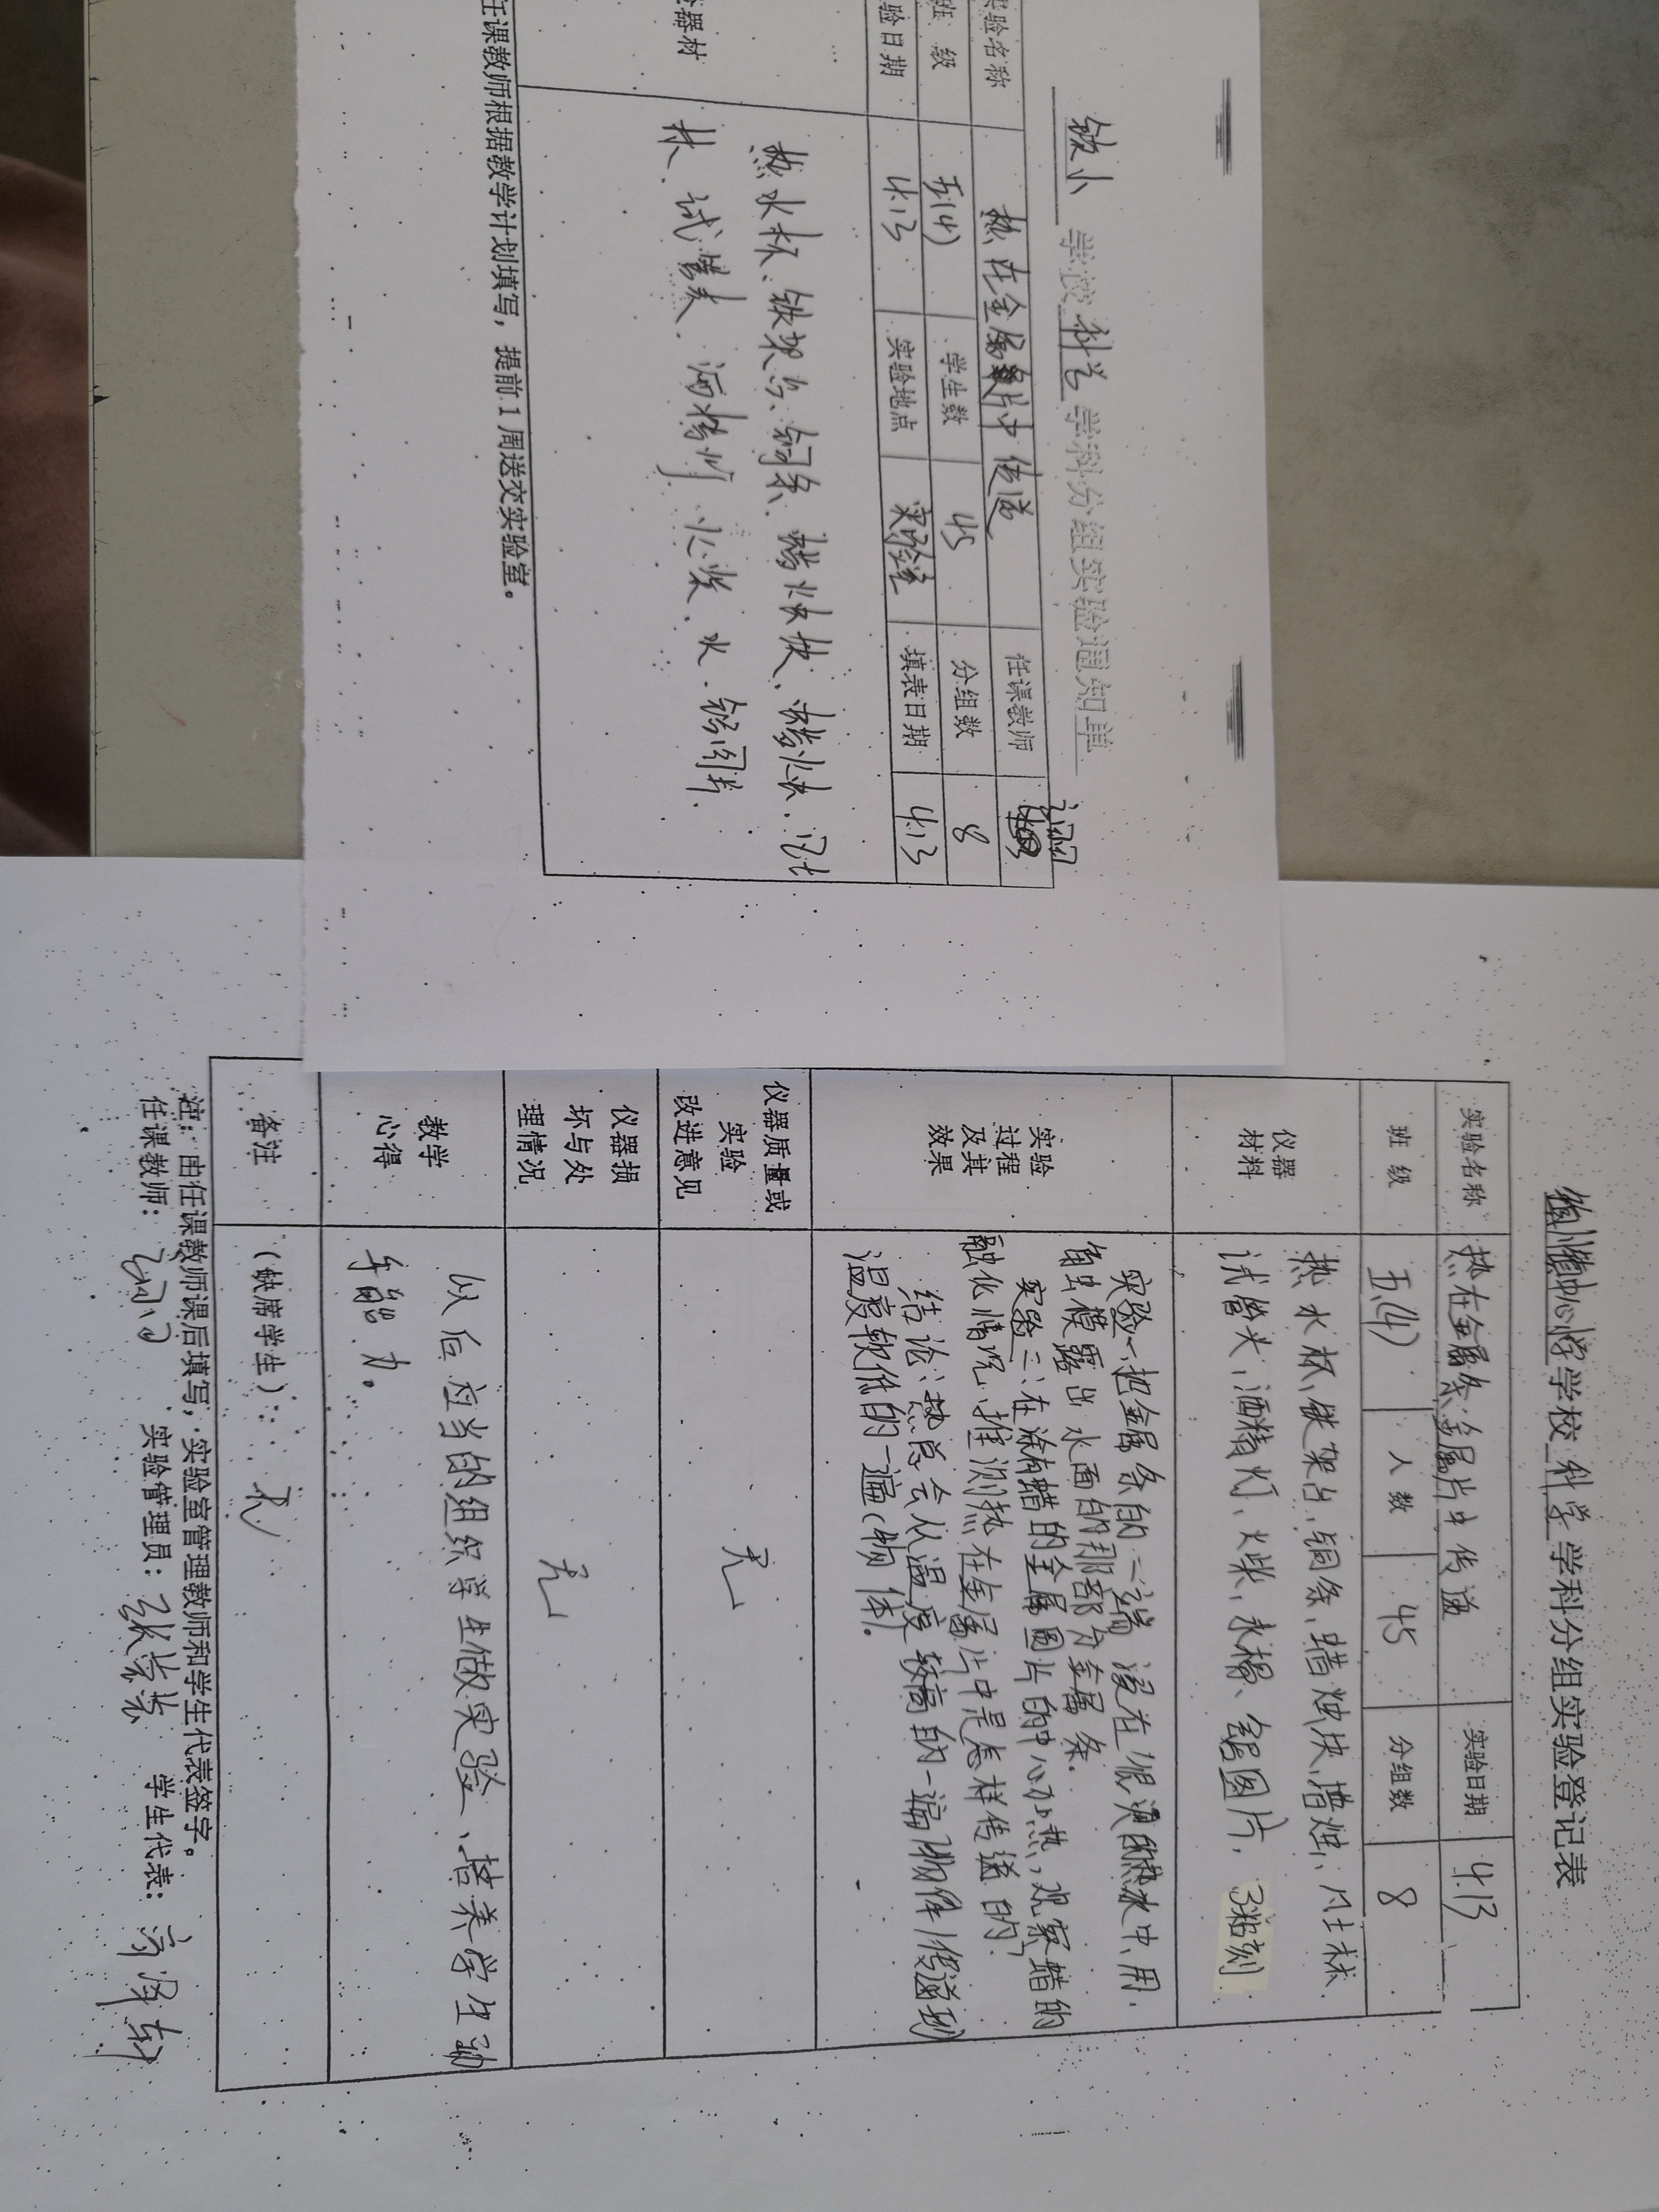 学校科学学科分组实验通知单
实验名称 热在金属片中传递 任课教师
班 级 五(4) 学生数 45 分组数 8
验日期 4.13 实验地点 实验室 填表日期 4.13
器材
热水杯、铁架台、铜条、蜡烛块、蜡烛、凡士
林、试管夹、酒精灯、火柴、水、铝圆片.
任课教师根据教学计划填写，提前1周送交实验室。
学校 科学 学科分组实验登记表
实验名称 热在金属条、金属片中传递 实验日期 4.13
班 级 五(4) 人数 45 分组数 8
仪器
材料
热水杯、铁架台、铜条、蜡烛块、蜡烛、凡士林、
试管夹、酒精灯、火柴、水槽、铝圆片、
实验
过程
及其
效果
实验一、把金属条的一端浸在很烫的热水中,用
触摸露出水面的那部分金属条。
实验三:在涂有蜡的金属圆片的中心加热,观察蜡的
融化情况,推测热在金属片中是怎样传递的?
结论:热总会从温度较高的一端(物体)传递到
温度较低的一端(物体)。
仪器质量或
实验
改进意见
无
仪器损
坏与处
理情况
无
教学
心得
以后应当的组织学生做实验、培养学生动
手能力。
备注 (缺席学生): 无
注：由任课教师课后填写，实验室管理教师和学生代表签字。
任课教师: 实验管理员: 学生代表: